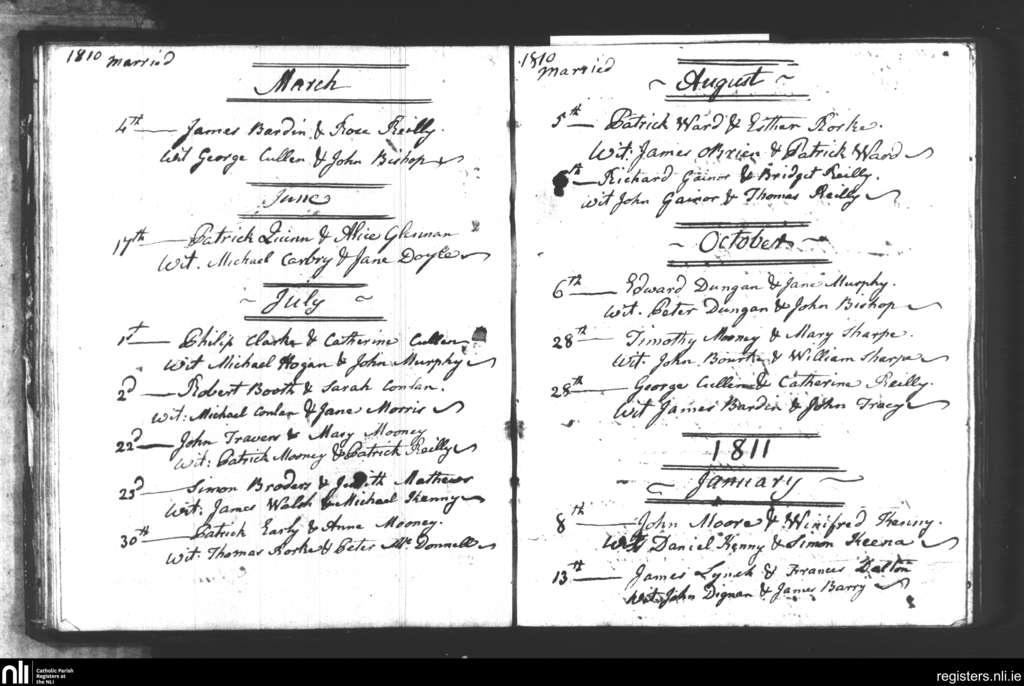 1810 Married
March
4th James Bardin & Rose Reilly.
Wit George Cullen & John Bishop
June
17th Patrick Quinn & Alice Glennan
Wit. Michael Carbry & Jane Doyle
July
1st Philip Clarke & Catherine Cullen
Wit Michael Hogan & John Murphy
2d Robert Booth & Sarah Conlan.
Wit: Michael Conlan & Jane Morris
22d John Travers & Mary Mooney
Wit: Patrick Mooney & Patrick Reilly
23d Simon Broders & Judith Mathews
Wit: James Walsh & Michael Kenny
30th Patrick Early & Anne Mooney.
Wit: Thomas Rorke & Peter McDonnell
1810 Married
August
5th Patrick Ward & Esther Rorke.
Wit: James OBrien & Patrick Ward
th Richard Gainor & Bridget Reilly.
Wit John Gainor & Thomas Reilly
October
6th Edward Dungan & Jane Murphy.
Wit. Peter Dungan & John Bishop
28th Timothy Mooney & Mary Sharpe.
Wit. John Bourke & William Sharpe
28th George Cullen & Catherine Reilly.
Wit James Bardin & John Tracy
1811
January
8th John Moore & Winifred Kenny.
Wit Daniel Kenny & Simon Keena
13th James Lynch & Frances Dalton
Wit. John Dignan & James Barry
nli Catholic Parish
Registers at
the NLI
registers.nli.ie